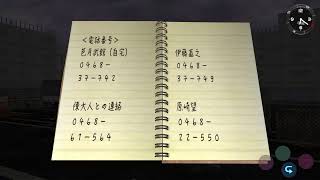 <電話番号>
芭月武館 (自宅)
0468-
37-742
陳大人との連絡
0468-
61-564
伊藤嘉之
0468-
37-749
原崎望
0468-
22-550